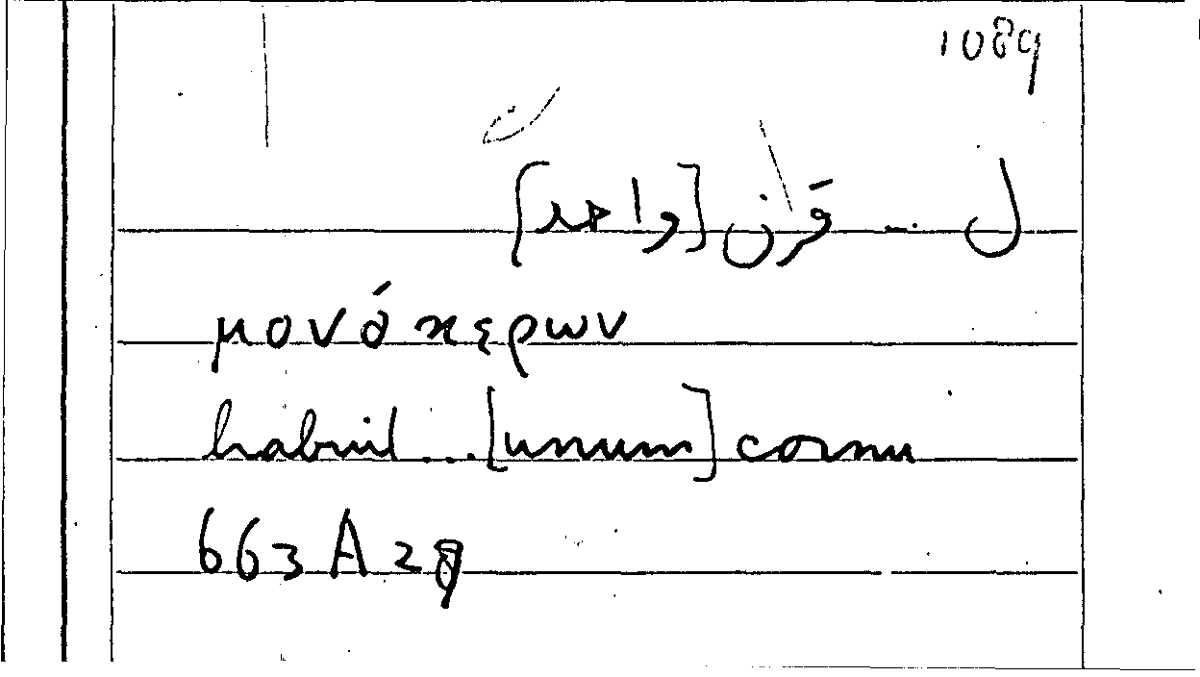 1089
ل ... قَرن [واحد]
μονόκερων
habuit ... [unum] cornu
663 A 29